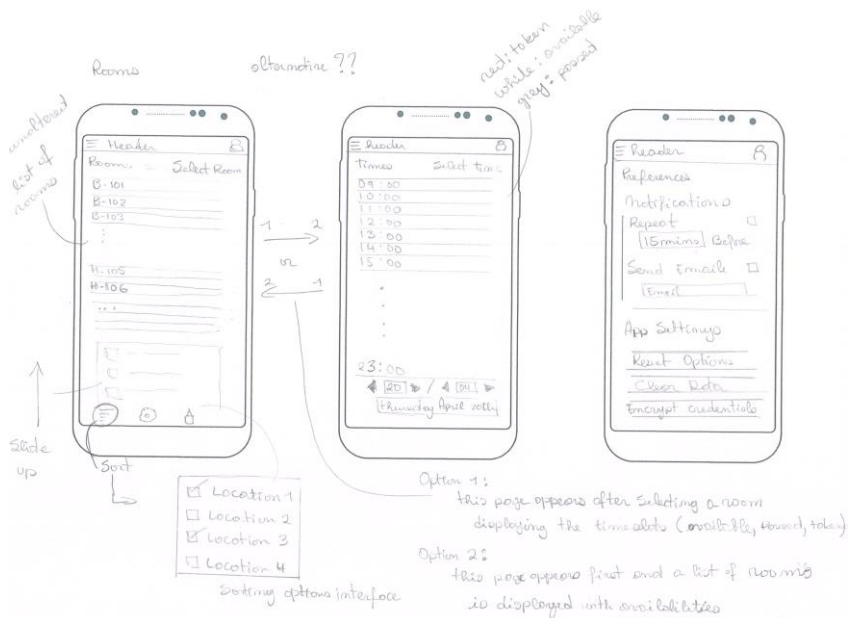 Rooms
alternative ??
red: taken
white: available
grey: passed
unaltered
list of
rooms
Header
Rooms Select Room
B-101
B-102
B-103
H-105
H-106
...
1 → 2
or
2 ← 1
Slide
up
Sort
Location 1
Location 2
Location 3
Location 4
Sorting options interface
Header
Times Select time
09:00
10:00
11:00
12:00
13:00
14:00
15:00
23:00
20 / 04
thursday April 20th
Header
Preferences
Notifications
Repeat
15 mins Before
Send Emails
Email
App Settings
Reset Options
Clear Data
Encrypt credentials
Option 1:
this page appears after selecting a room
displaying the timeslots (available, passed, taken)
Option 2:
this page appears first and a list of rooms
is displayed with availabilities